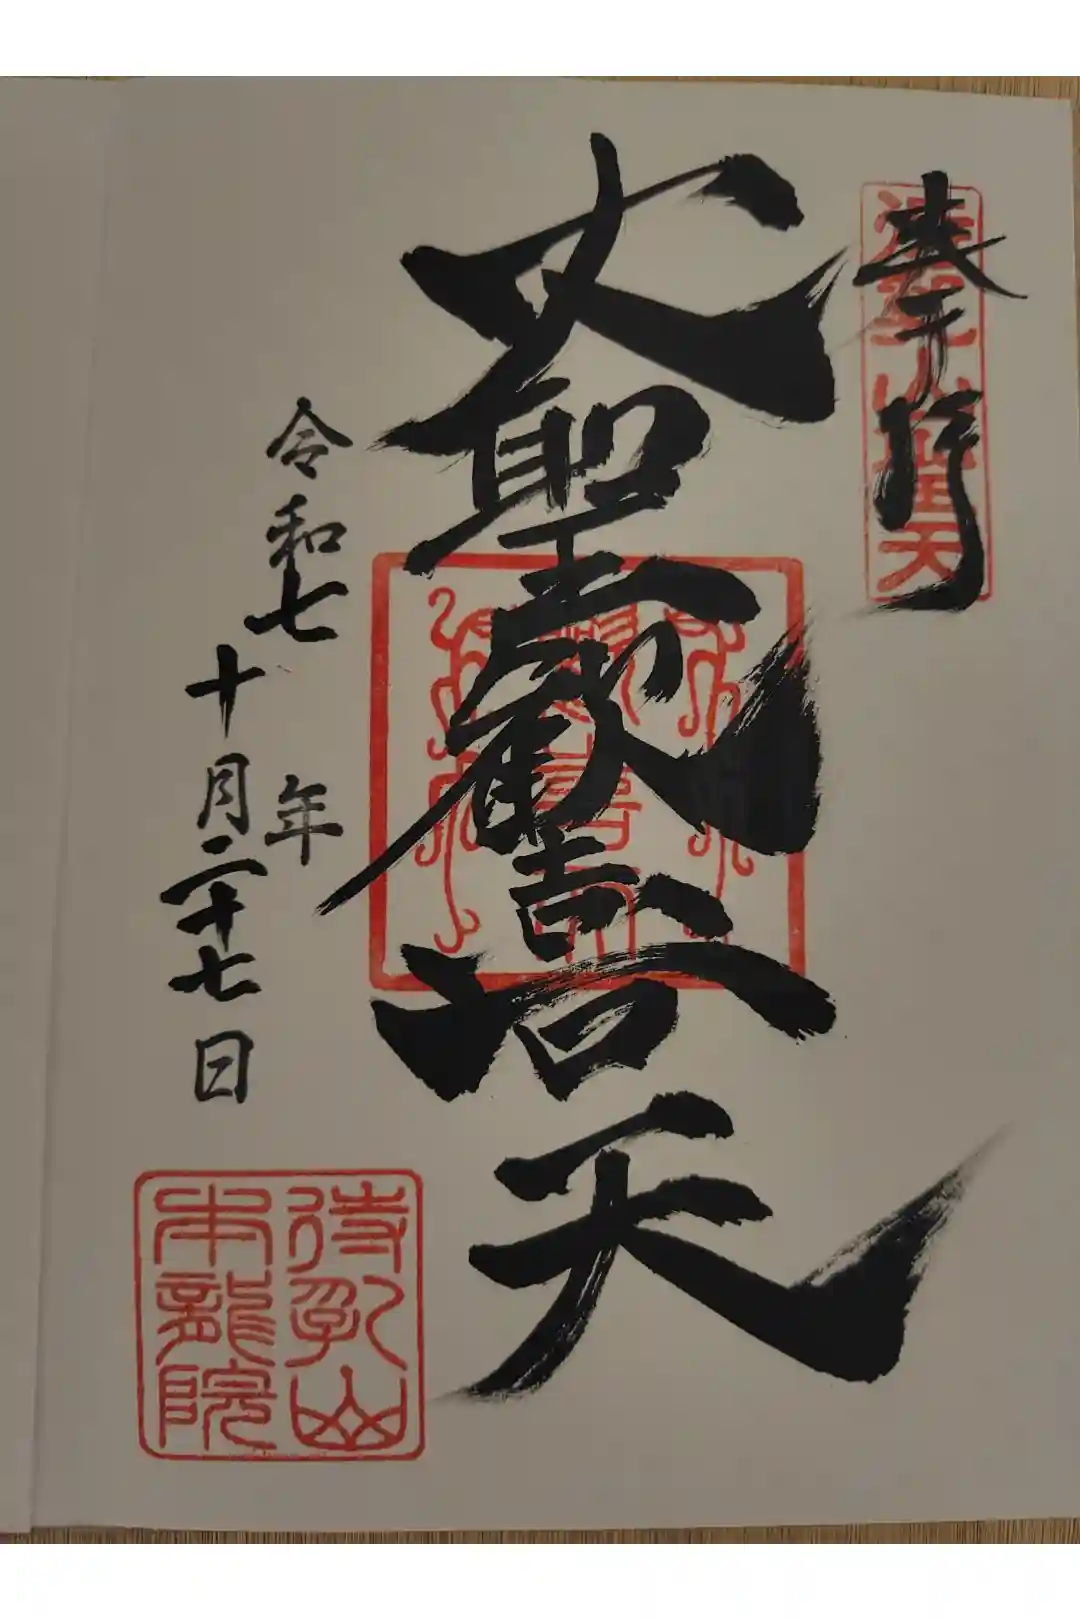 奉拝
浅草山聖天
大聖歓喜天
令和七年
十月二十七日
待乳山
本龍院